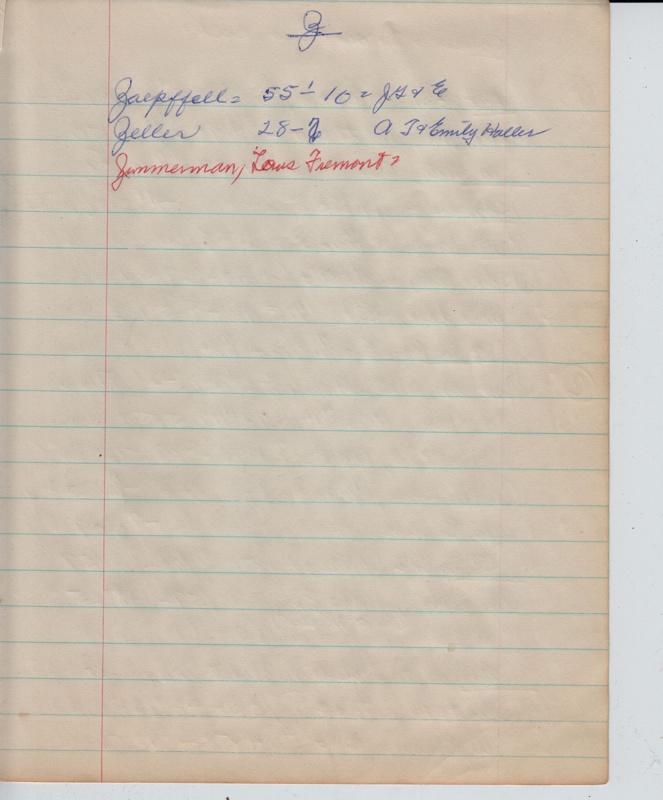 Z
Zaepffell = 55-10 = J
Zeller 28- A T & Emily Haller
Zimmerman, Fremont